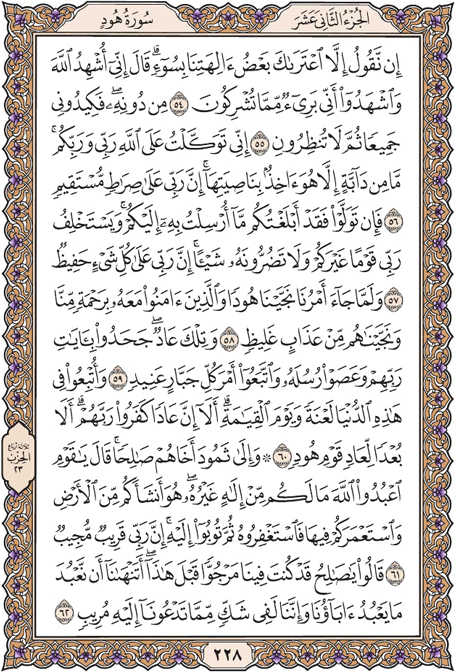 الجزء الثاني عشر
سورة هود
إِن نَّقُولُ إِلَّا ٱعْتَرَىٰكَ بَعْضُ ءَالِهَتِنَا بِسُوٓءٍ ۗ قَالَ إِنِّىٓ أُشْهِدُ ٱللَّهَ
وَٱشْهَدُوٓا۟ أَنِّى بَرِىٓءٌ مِّمَّا تُشْرِكُونَ ٥٤ مِن دُونِهِۦ ۖ فَكِيدُونِى
جَمِيعًا ثُمَّ لَا تُنظِرُونِ ٥٥ إِنِّى تَوَكَّلْتُ عَلَى ٱللَّهِ رَبِّى وَرَبِّكُم ۚ
مَّا مِن دَآبَّةٍ إِلَّا هُوَ ءَاخِذٌۢ بِنَاصِيَتِهَآ ۚ إِنَّ رَبِّى عَلَىٰ صِرَٰطٍ مُّسْتَقِيمٍ
٥٦ فَإِن تَوَلَّوْا۟ فَقَدْ أَبْلَغْتُكُم مَّآ أُرْسِلْتُ بِهِۦٓ إِلَيْكُمْ ۚ وَيَسْتَخْلِفُ
رَبِّى قَوْمًا غَيْرَكُمْ وَلَا تَضُرُّونَهُۥ شَيْـًٔا ۚ إِنَّ رَبِّى عَلَىٰ كُلِّ شَىْءٍ حَفِيظٌ
٥٧ وَلَمَّا جَآءَ أَمْرُنَا نَجَّيْنَا هُودًا وَٱلَّذِينَ ءَامَنُوا۟ مَعَهُۥ بِرَحْمَةٍ مِّنَّا
وَنَجَّيْنَٰهُم مِّنْ عَذَابٍ غَلِيظٍ ٥٨ وَتِلْكَ عَادٌ ۖ جَحَدُوا۟ بِـَٔايَٰتِ
رَبِّهِمْ وَعَصَوْا۟ رُسُلَهُۥ وَٱتَّبَعُوٓا۟ أَمْرَ كُلِّ جَبَّارٍ عَنِيدٍ ٥٩ وَأُتْبِعُوا۟ فِى
هَٰذِهِ ٱلدُّنْيَا لَعْنَةً وَيَوْمَ ٱلْقِيَٰمَةِ ۗ أَلَآ إِنَّ عَادًا كَفَرُوا۟ رَبَّهُمْ ۗ أَلَا
بُعْدًا لِّعَادٍ قَوْمِ هُودٍ ٦٠ ۞ وَإِلَىٰ ثَمُودَ أَخَاهُمْ صَٰلِحًا ۚ قَالَ يَٰقَوْمِ
ٱعْبُدُوا۟ ٱللَّهَ مَا لَكُم مِّنْ إِلَٰهٍ غَيْرُهُۥ ۖ هُوَ أَنشَأَكُم مِّنَ ٱلْأَرْضِ
وَٱسْتَعْمَرَكُمْ فِيهَا فَٱسْتَغْفِرُوهُ ثُمَّ تُوبُوٓا۟ إِلَيْهِ ۚ إِنَّ رَبِّى قَرِيبٌ مُّجِيبٌ
٦١ قَالُوا۟ يَٰصَٰلِحُ قَدْ كُنتَ فِينَا مَرْجُوًّا قَبْلَ هَٰذَآ ۖ أَتَنْهَىٰنَآ أَن نَّعْبُدَ
مَا يَعْبُدُ ءَابَآؤُنَا وَإِنَّنَا لَفِى شَكٍّ مِّمَّا تَدْعُونَآ إِلَيْهِ مُرِيبٍ ٦٢
الحزب
٢٣
٢٢٨